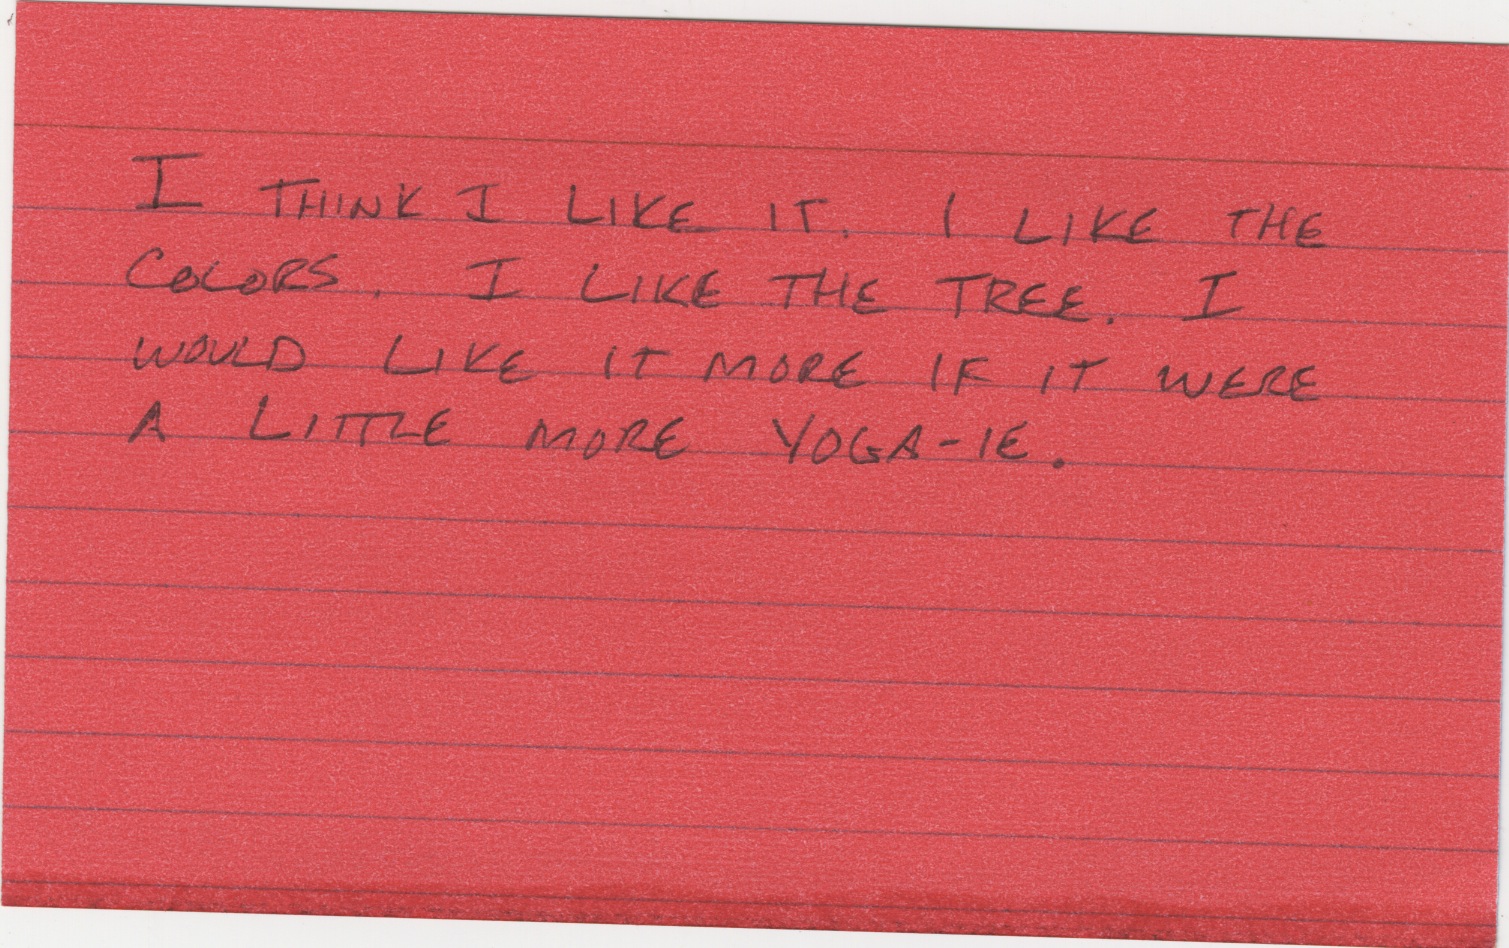 I THINK I LIKE IT. I LIKE THE
COLORS. I LIKE THE TREE. I
WOULD LIKE IT MORE IF IT WERE
A LITTLE MORE YOGA-IE.